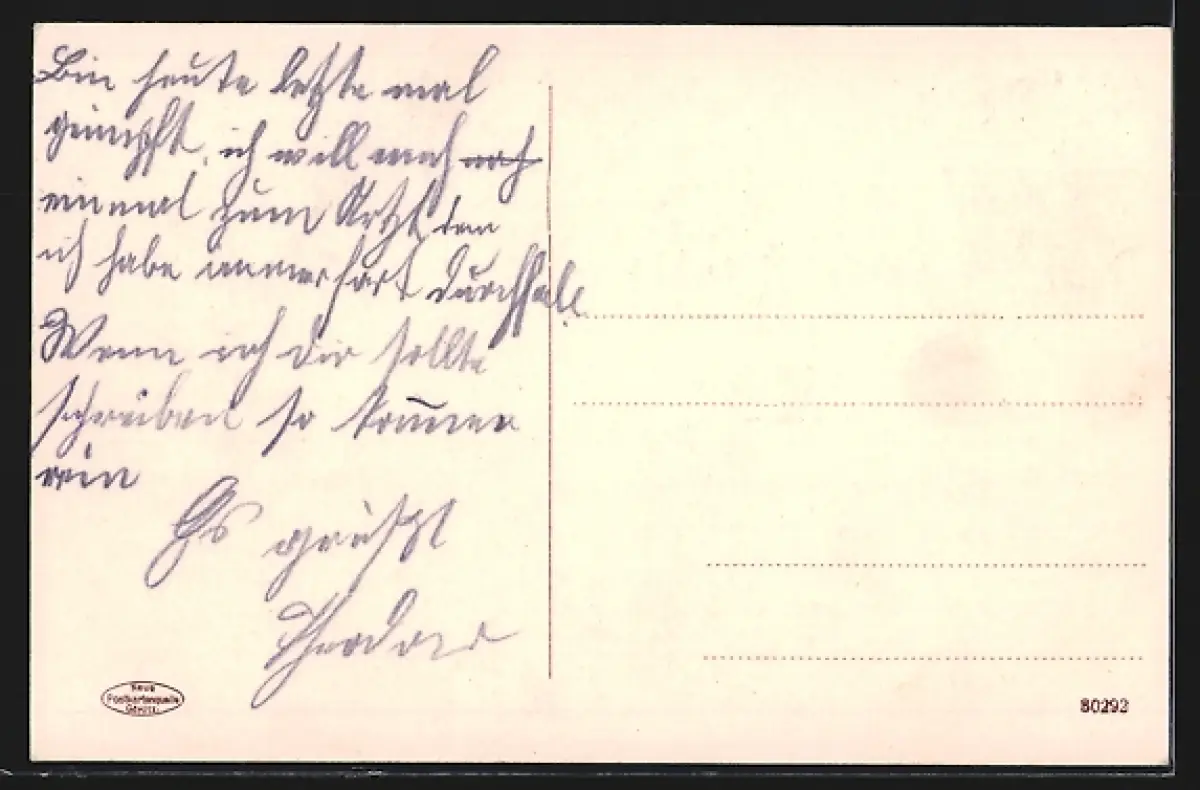 Bin heute letzte mal
geimpft, ich will mich noch
einmal zum Artzt den
ich habe immerfort Durchfall
Wenn ich dir sollte
schreiben so kommen
ein
Es grüßt
Theodor
Neue
Postkartenquelle
80292